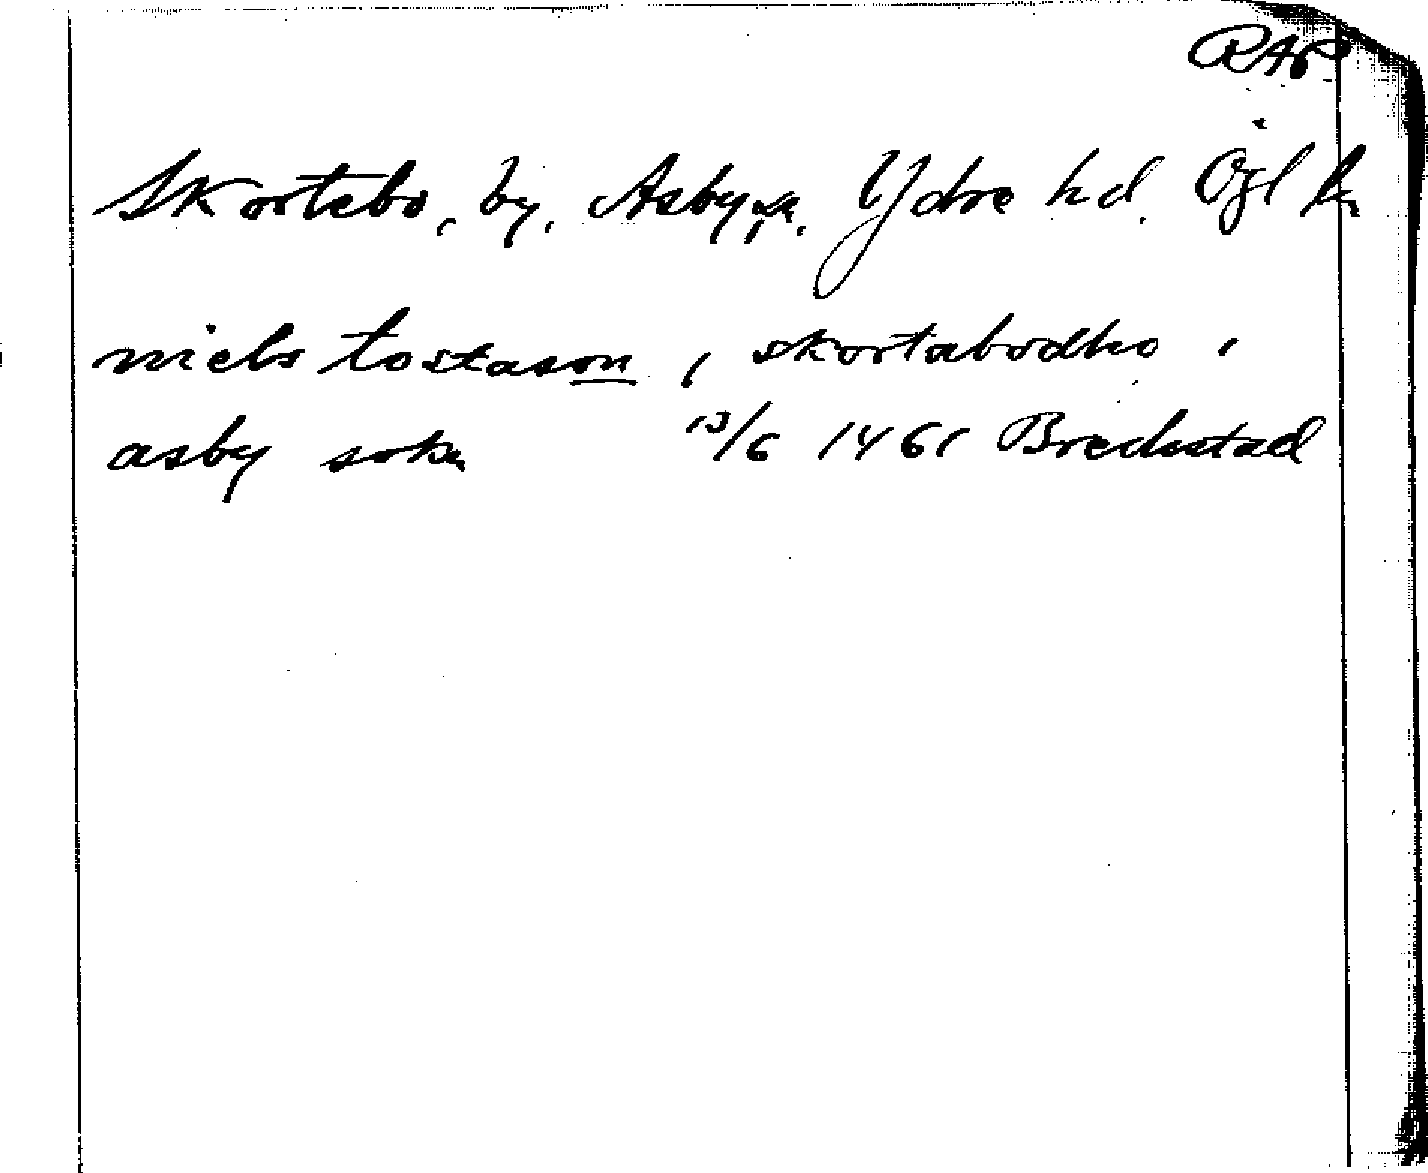 RAP
Skortebo, by, Asby sn. Ydre hd. Ögl ln
niels tostason i skortabodho i
asby sokn 13/6 1461 Bredestad